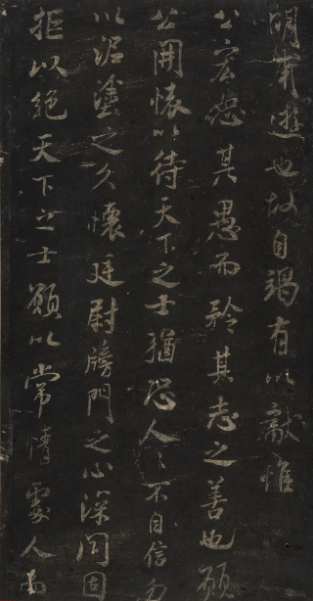 明前進也故自竭有以獻惟
公宏恕其愚而矜其志之善也願
公開懷以待天下之士猶恐人人不自信勿
以泥塗之久懷廷尉牓門之心深閉固
拒以絕天下之士願以常情處人而